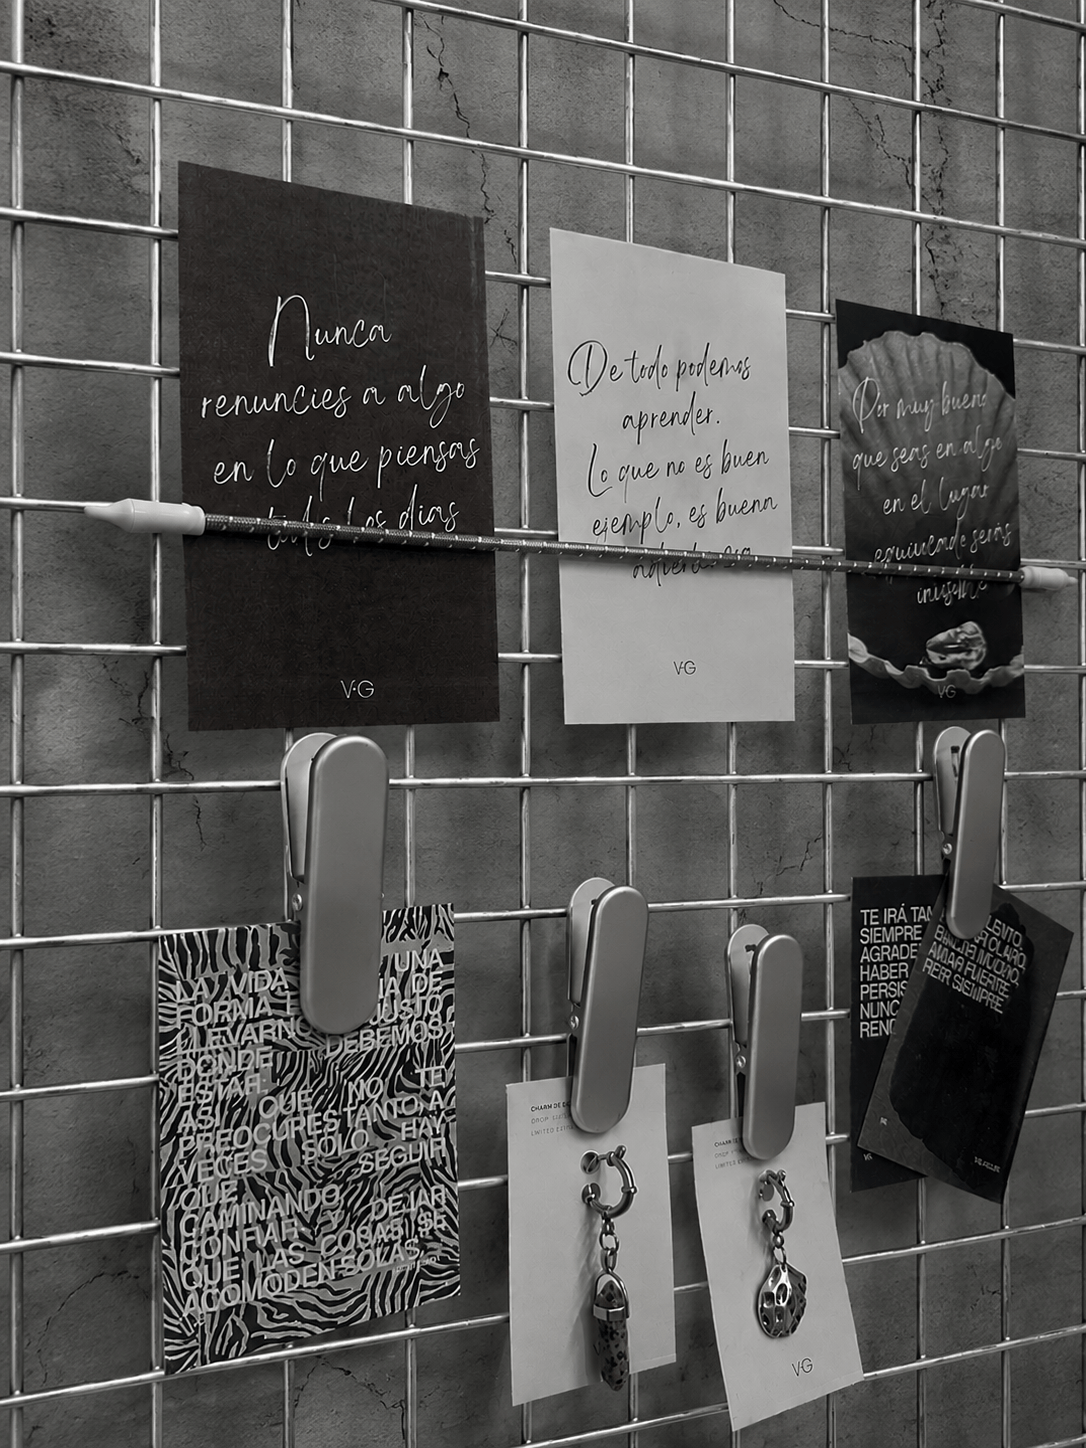 Nunca
renuncies a algo
en lo que piensas
todos los días
V·G
De todo podemos
aprender.
Lo que no es buen
ejemplo, es buena
V·G
Por muy bueno
que seas en algo
en el lugar
equivocado serás
invisible
VG
LA VIDA UNA
FORMA DE
LLEVARNOS JUSTO
DONDE DEBEMOS
ESTAR.
ASI QUE NO TE
PREOCUPES TANTO, A
VECES SOLO HAY
QUE SEGUIR
CAMINANDO
CONFIAR Y DEJAR
QUE LAS COSAS SE
ACOMODEN SOLAS.
CHARM DE
DROP
LIMITED
DROP
LIMITED
V·G
TE IRÁ TAN
SIEMPRE
AGRADE
HABER
PERSIS
NUNC
RENC
VG
AMAR FUERTE.
REIR SIEMPRE.